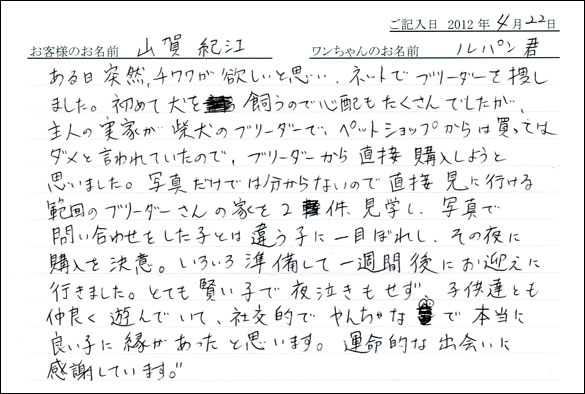 ご記入日 2012年4月22日
お客様のお名前 山賀 紀江 ワンちゃんのお名前 ルパン君
ある日突然、チワワが欲しいと思い、ネットでブリーダーを捜し
ました。初めて犬を飼うので心配もたくさんでしたが、
主人の実家が柴犬のブリーダーで、ペットショップからは買っては
ダメと言われていたので、ブリーダーから直接購入しようと
思いました。写真だけでは分からないので直接見に行ける
範囲のブリーダーさんの家を2件、見学し、写真で
問い合わせをした子とは違う子に一目ぼれし、その夜に
購入を決意。いろいろ準備して一週間後にお迎えに
行きました。とても賢い子で夜泣きもせず、子供達とも
仲良く遊んでいて、社交的でやんちゃなで本当に
良い子に縁があったと思います。運命的な出会いに
感謝しています。"